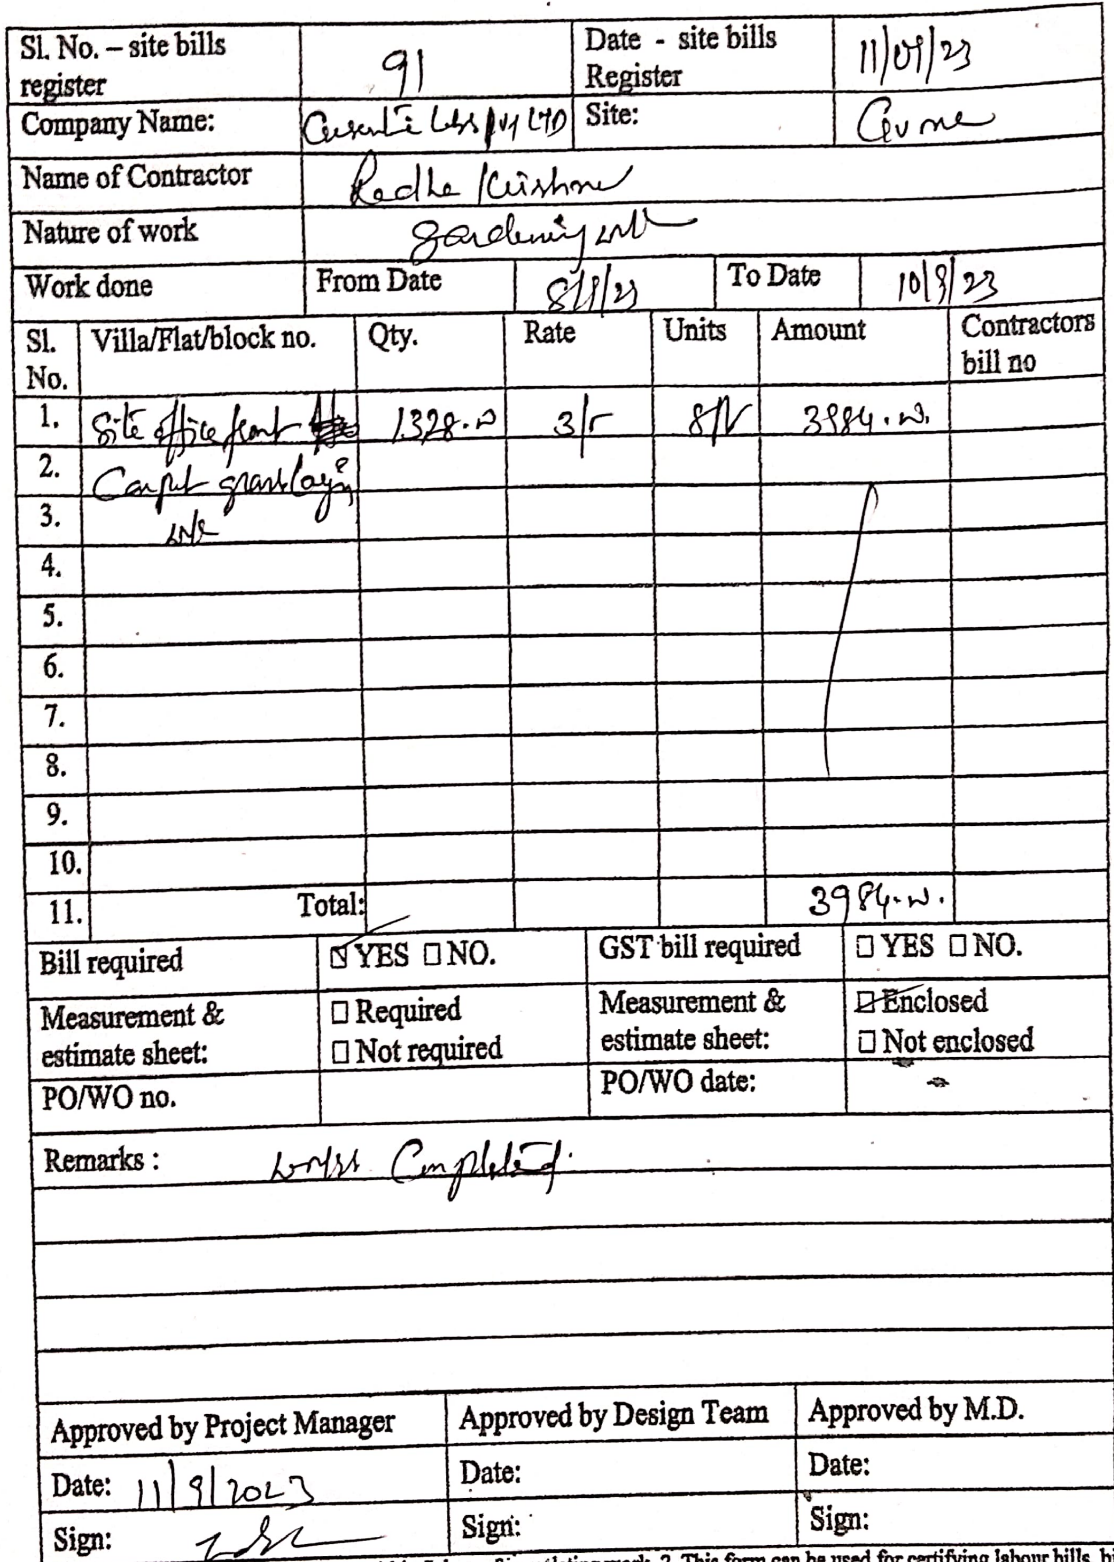 Sl. No. – site bills register 91 Date - site bills Register 11/09/23
Company Name: Labs Pvt LTD Site:
Name of Contractor Radha Krishna
Nature of work gardening work
Work done From Date 8/9/23 To Date 10/9/23
Sl. No. Villa/Flat/block no. Qty. Rate Units Amount Contractors bill no
1. Site office front 1328.00 3/- 3984.00.
2. Carpet grass laying
3. work
4.
5.
6.
7.
8.
9.
10.
11. Total: 3984.00.
Bill required YES NO. GST bill required YES NO.
Measurement & estimate sheet: Required Not required Measurement & estimate sheet: Enclosed Not enclosed
PO/WO no. PO/WO date:
Remarks : Completed.
Approved by Project Manager Approved by Design Team Approved by M.D.
Date: 11/9/2023 Date: Date:
Sign: Sign: Sign:
2. This form can be used for certifying labour bills,